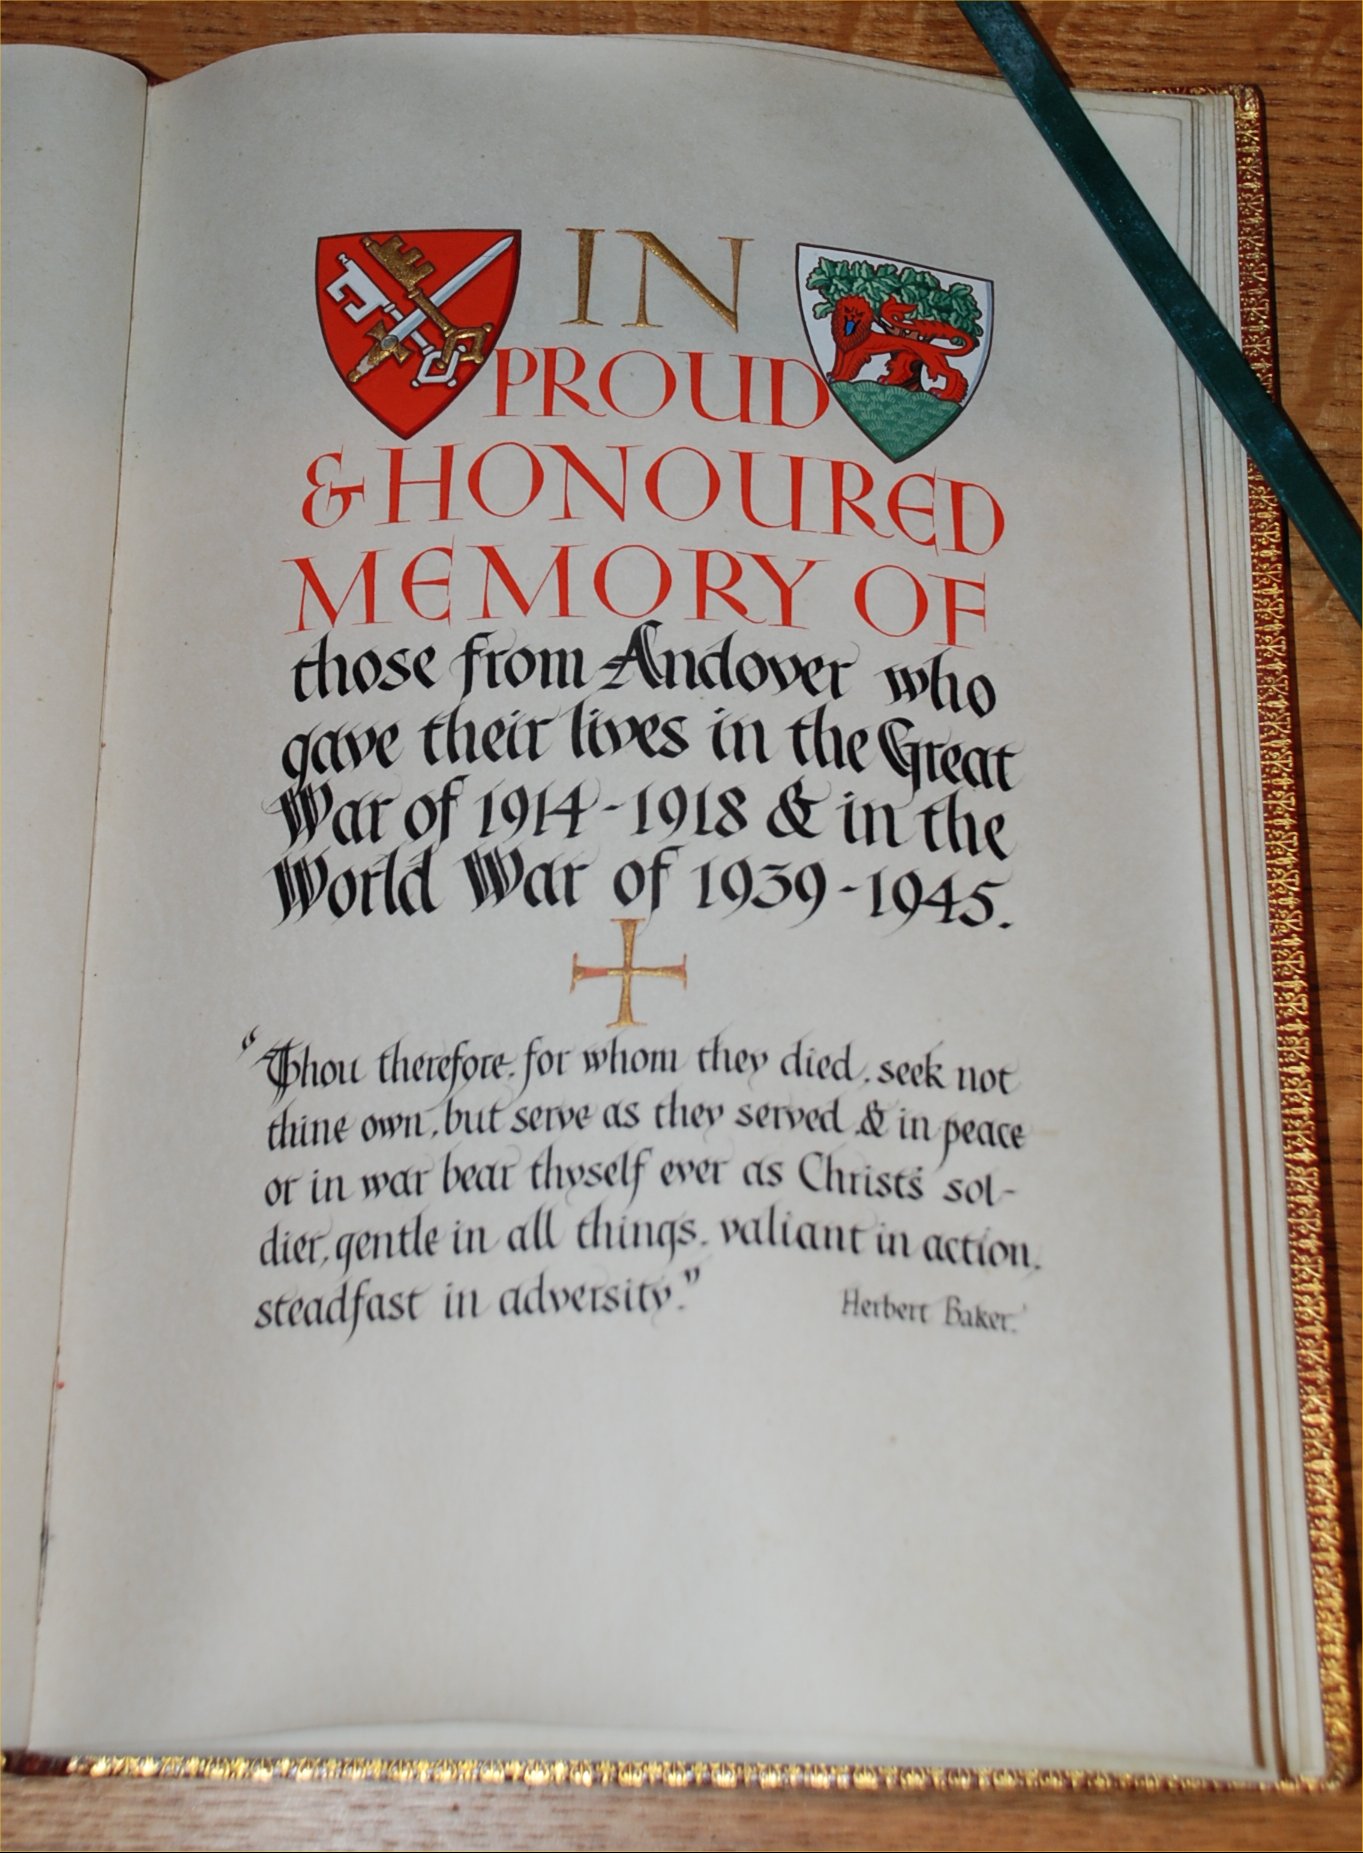 IN
PROUD
& HONOURED
MEMORY OF
those from Andover who
gave their lives in the Great
War of 1914-1918 & in the
World War of 1939-1945.
"Thou therefore, for whom they died, seek not
thine own, but serve as they served, & in peace
or in war bear thyself ever as Christ's sol-
dier, gentle in all things, valiant in action,
steadfast in adversity."
Herbert Baker.